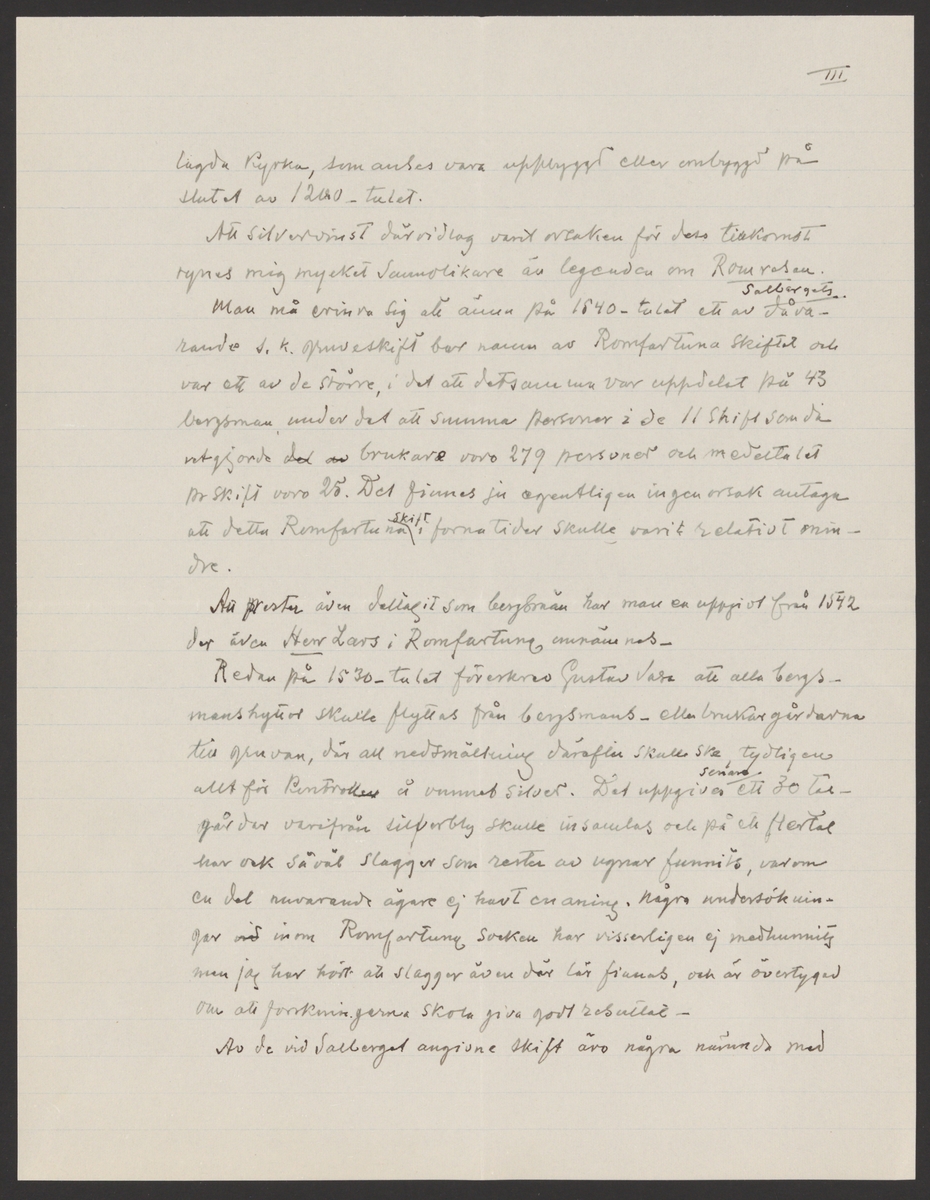 III
lagda Kyrka, som anses vara uppbyggd eller ombyggd på
slutet av 1200-talet.
Att silvervinst därvidlag varit orsaken för dess tillkomst
synes mig mycket sannolikare än legenden om Romresan.
Salbergets
Man må erinra sig att ännu på 1540-talet ett av dåva-
rande s. k. gruveskift bar namn av Romfartuna skiftet och
var ett av de större, i det att detsamma var uppdelat på 43
bergsman, under det att summa personer i de 11 skift som då
utgjorde del av brukare voro 279 personer och medeltalet
pr skift voro 25. Det finnes ju egentligen ingen orsak antaga
skift
att detta Romfartuna i forna tider skulle varit relativt min-
dre.
Att prester även deltagit som bergsmän har man en uppgivt från 1542
der även Herr Lars i Romfartuna omnämnes-
Redan på 1530-talet föreskrev Gustav Vasa att alla bergs-
manshyttor skulle flyttas från bergsmans- eller brukargårdarna
till gruvan, där all nedsmältning därefter skulle ske, tydligen
senare
allt för Kontrollen å vunnet silver. Det uppgives ett 30 tal-
gårdar varifrån silfverbly skulle insamlas och på ett flertal
har ock såväl slagger som rester av ugnar funnits, varom
en del nuvarande ägare ej havt en aning. Några undersöknin-
gar vid inom Romfartuna socken har visserligen ej medhunnits
men jag har hört att slagger även där lär finnas, och är övertygad
om att forskningarna skola giva godt resultat-
Av de vid Salberget angivne skift äro några nämnda med